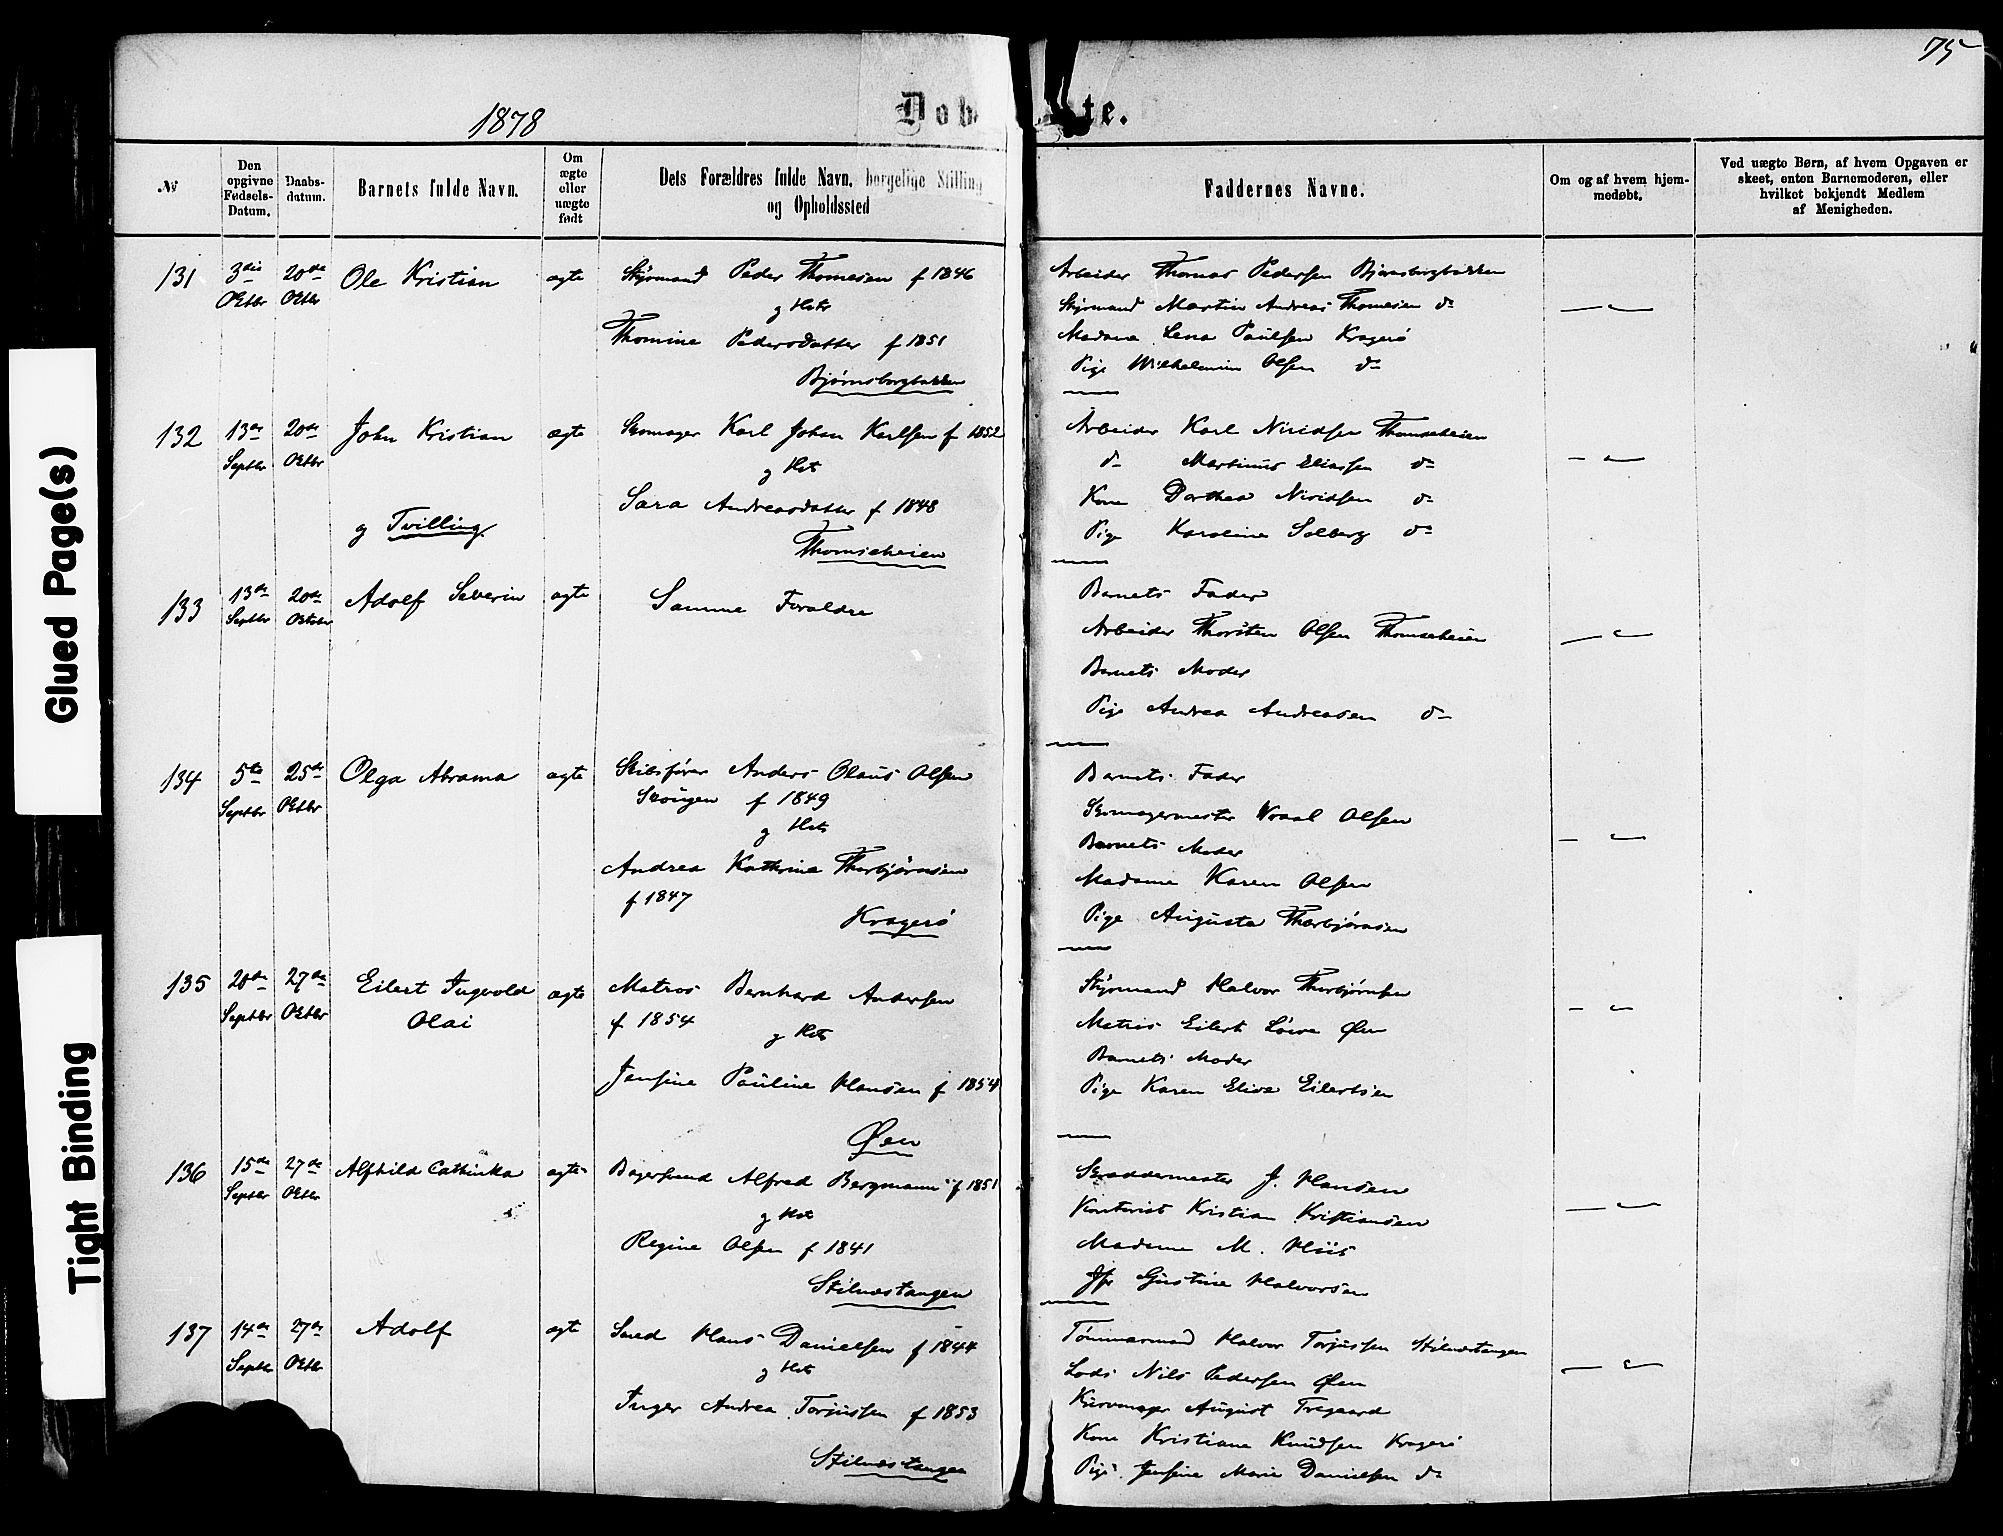 75
1878
Dob te.
№
Den opgivne Fødsels-Datum.
Daabs-datum.
Barnets fulde Navn.
Om ægte eller uægte født
Dets Forældres fulde Navn, borgelige Stilling og Opholdssted
Faddernes Navne.
Om og af hvem hjem-medøbt.
Ved uægte Børn, af hvem Opgaven er skeet, enten Barnemoderen, eller hvilket bekjendt Medlem af Menigheden.
131 3die Octbr 20de Octbr Ole Kristian ægte
Styrmand Peder Thomesen f 1846
g Hst
Thomine Pedersdatter f 1851
Bjørnsborgbakken
Arbeider Thomas Pedersen Bjørnsborgbakken
Styrmand Martin Andreas Thomesen do
Madame Lena Paulsen Kragerø
Pige Wilhelmine Olsen do
132 13de Septbr 20de Octbr John Kristian ægte
g Tvilling
Skomager Karl Johan Karlsen f 1852
g Hst
Sara Andreasdatter f 1848
Thomseheien
Arbeider Karl Niridsen Thomseheien
do Martinus Eliassen do
Kone Dorthea Niridsen do
Pige Karoline Solberg do
133 13de Septbr 20de Octobr Adolf Severin ægte
Samme Forældre
Barnets Fader
Arbeider Thorsten Olsen Thomseheien
Barnets Moder
Pige Andrea Andreasen do
134 5te Septbr 25de Octbr Olga Abrama ægte
Skibsfører Anders Olaus Olsen
Skougen f 1849
g Hst
Andrea Kathrine Thorbjørnsen
f 1847
Kragerø
Barnets Fader
Skomagermester Wraal Olsen
Barnets Moder
Madame Karen Olsen
Pige Augusta Thorbjørnsen
135 20de Septbr 27de Octbr Eilert Ingvold Olai ægte
Matros Bernhard Andersen
f 1854 g Hst
Jensine Pauline Hansen f 1854
Øen
Styrmand Halvor Thorbjørnsen
Matros Eilert Løwe Øen
Barnets Moder
Pige Karen Elise Eilertsen
136 15de Septbr 27de Octbr Alfhild Cathinka ægte
Bagersvend Alfred Bergmann f 1851
g Hst
Regine Olsen f 1841
Stilnæstangen
Skræddermester J. Hansen
Kontorist Kristian Kristiansen
Madame M. Hiis
Jfr Gustine Halvorsen
137 14de Septbr 27de Octbr Adolf ægte
Smed Hans Danielsen f 1844
g Hst
Inger Andrea Torjussen f 1853
Stilnæstangen
Tømmermand Halvor Torjussen Stilnæstangen
Lods Nils Pedersen Øen
Kurvmager August Tregaard
Kone Kristiane Knudsen Kragerø
Pige Jensine Marie Danielsen do
Glued Page(s)
Tight Binding